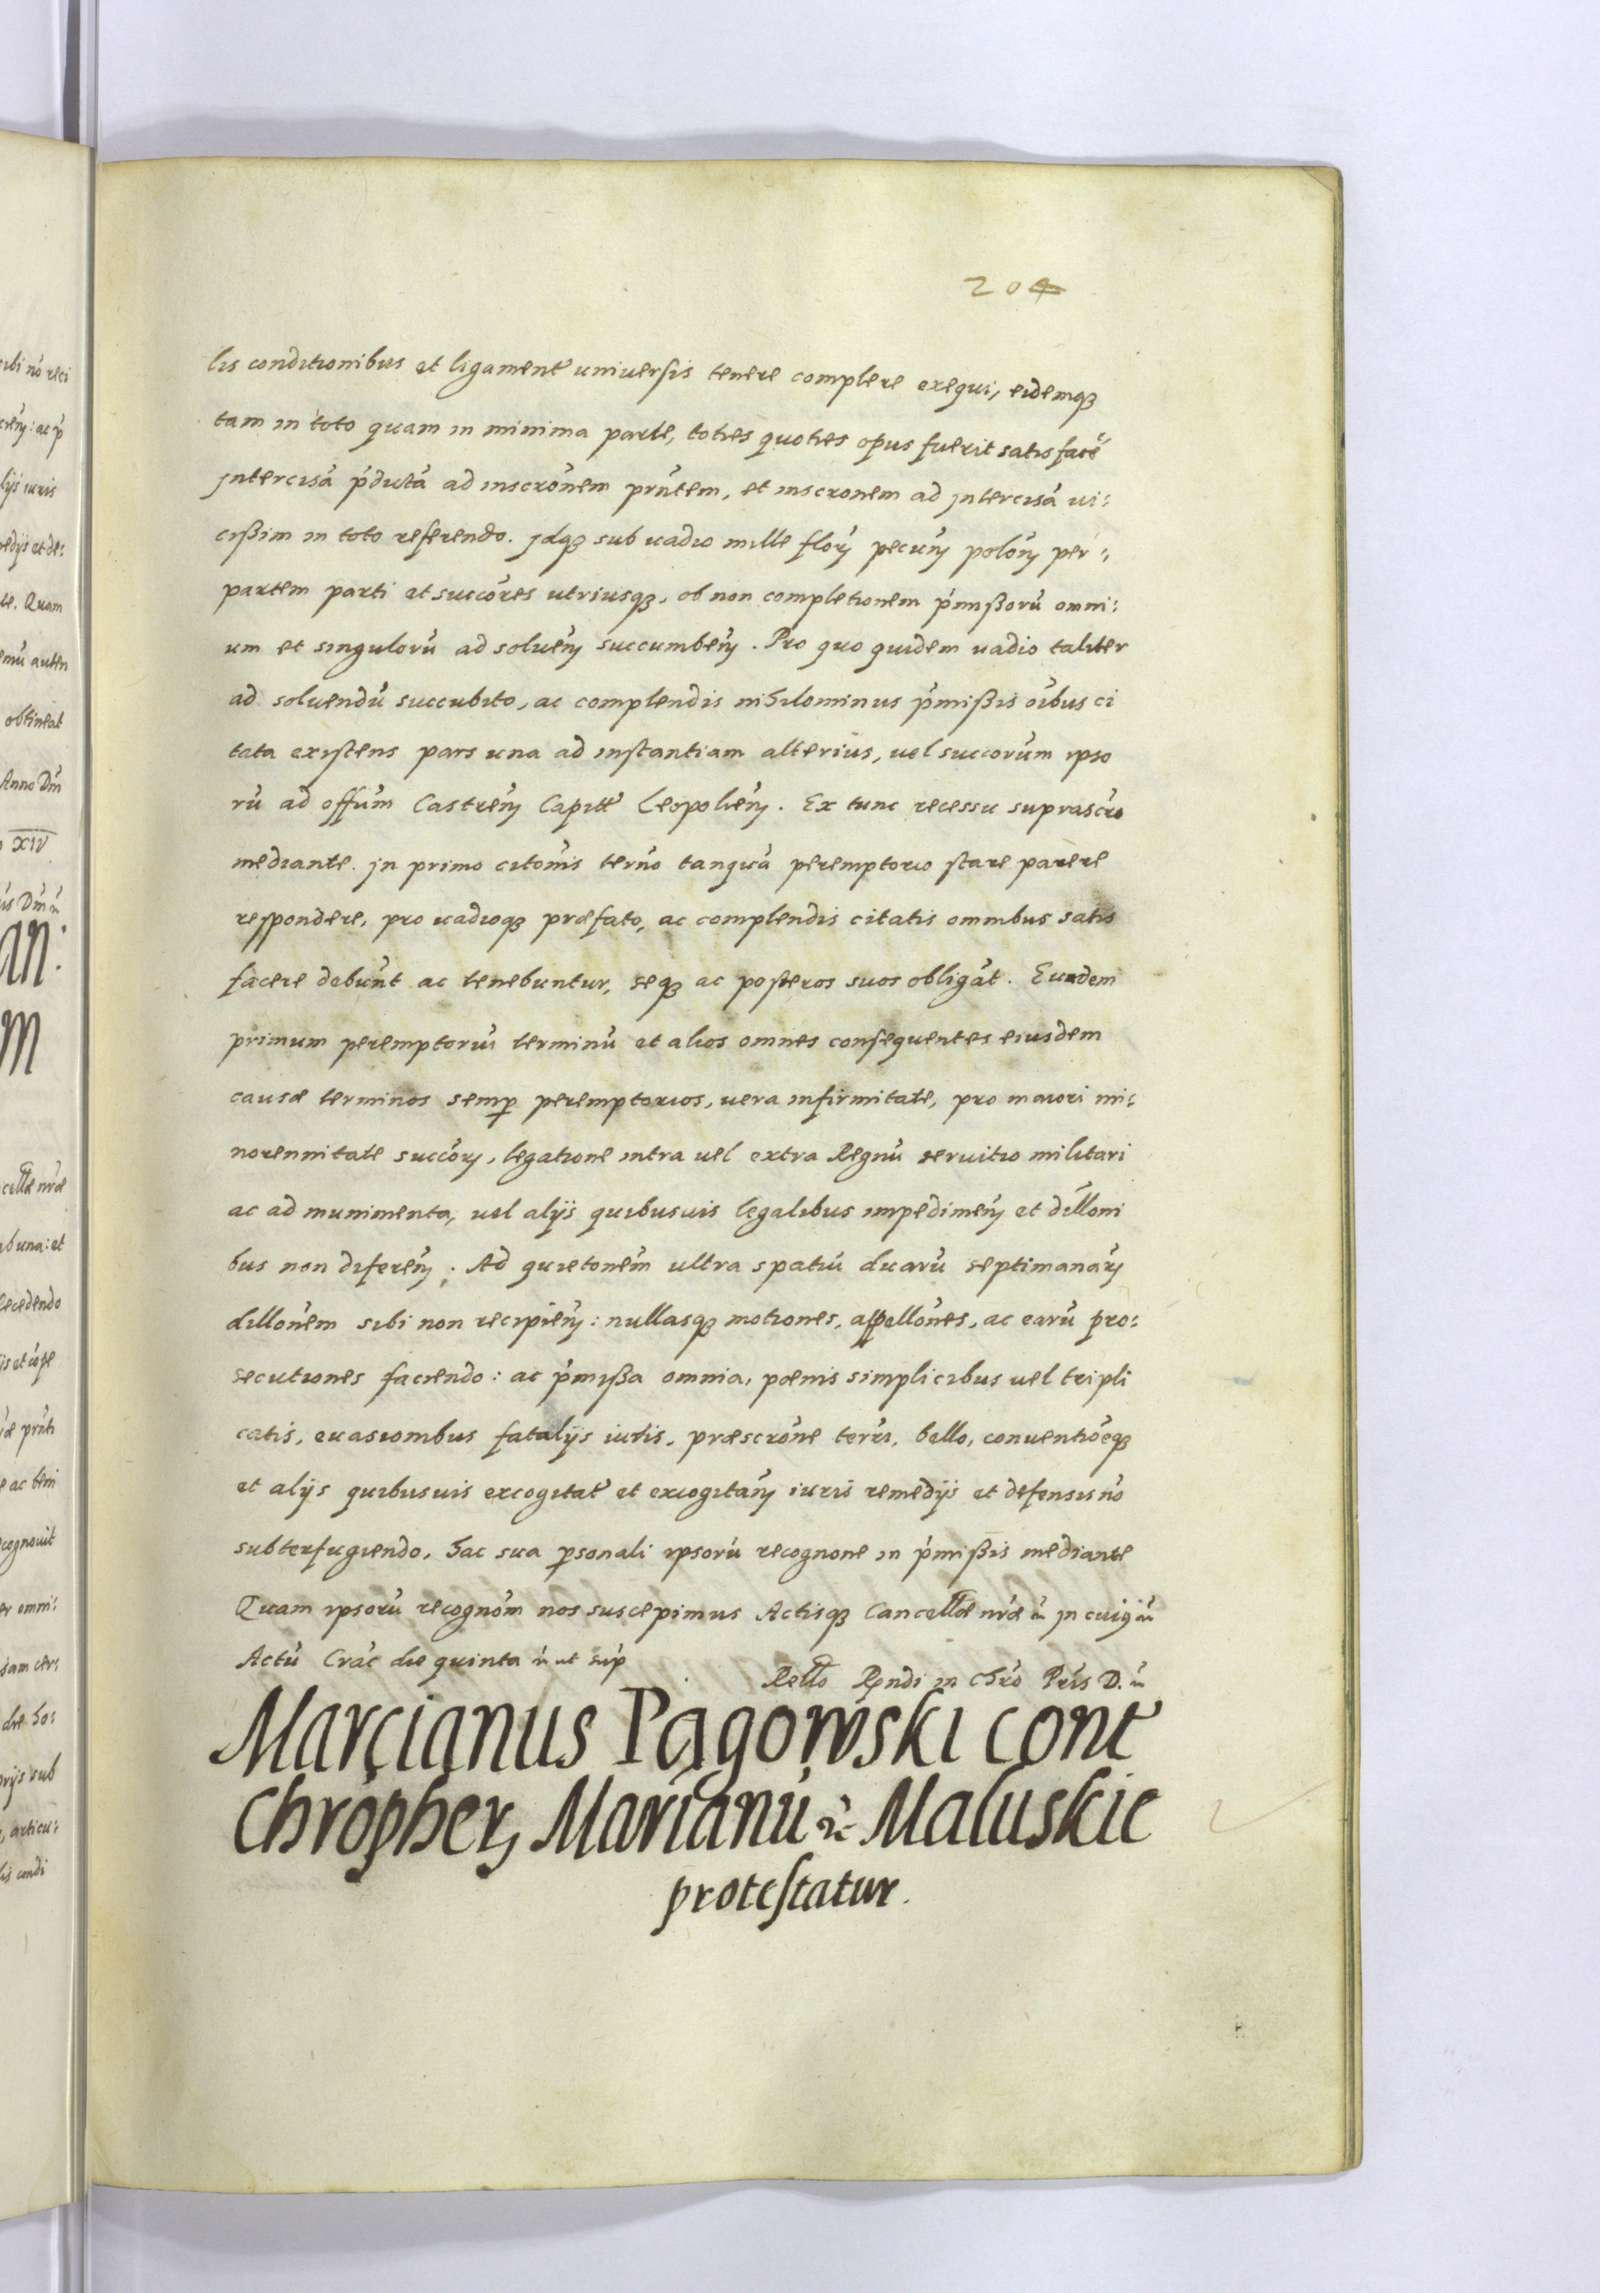 204
lis conditionibus et ligament universis tenere complere exequi, eidemq
tam in toto quam in minima parte, toties quoties opus fuerit satisfacẽ
jntercisã p̃dictã ad inscrõnem prñtem, et inscronem ad jntercisã vi:
cißim in toto referendo. jdq sub vadio mille flor pecun polon per:
partem parti et succõres utriusq, ob non completionem p̃mißorũ omni:
um et singulorũ ad soluen succumben. Pro quo quidem vadio taliter
ad soluendũ succubito, ac complendis nihilominus p̃mißis oĩbus ci
tata existens pars una ad instantiam alterius, vel succorũm ipso
rũ ad offũm Castren Capitt Leopolien. Ex tunc recessu suprascro
mediante. jn primo citonis terno tanquã peremptorio stare parere
respondere, pro vadioq præfato, ac complendis citatis omnibus satis
facere debunt ac tenebuntur, seq ac posteros suos obligãt. Eundem
primum peremptoriũ terminũ et alios omnes consequentes eiusdem
causæ terminos semp peremptorios, vera infirmitate, pro maiori mi:
norennitate succor, legatione intra vel extra Regnũ servitio militari
ac ad munimenta, vel alijs quibusvis legalibus impedimen et dilloni
bus non diferen. Ad quietonẽm ultra spatiũ duarũ septimanar
dillonẽm sibi non recipien: nullasq motiones, appellones, ac earũ pro:
secutiones faciendo: ac p̃mißa omnia, pœnis simplicibus vel tripli
catis, evasionibus fatalijs iuris, præscrõne terri, bello, conventiõeq
et alijs quibusvis excogitat et excogitan iuris remedijs et defensis nõ
subterfugiendo, hac sua psonali ipsorũ recognone in p̃mißis mediante
Quam ipsorũ recognõm nos suscepimus Actisq Cancellæ nræ in
Actũ Crac die quinta ut sup
Rello Rndi in Chro Pris D.
Marcianus Pagowski cont
Chropher, Marianũ Maluskie
protestatur.